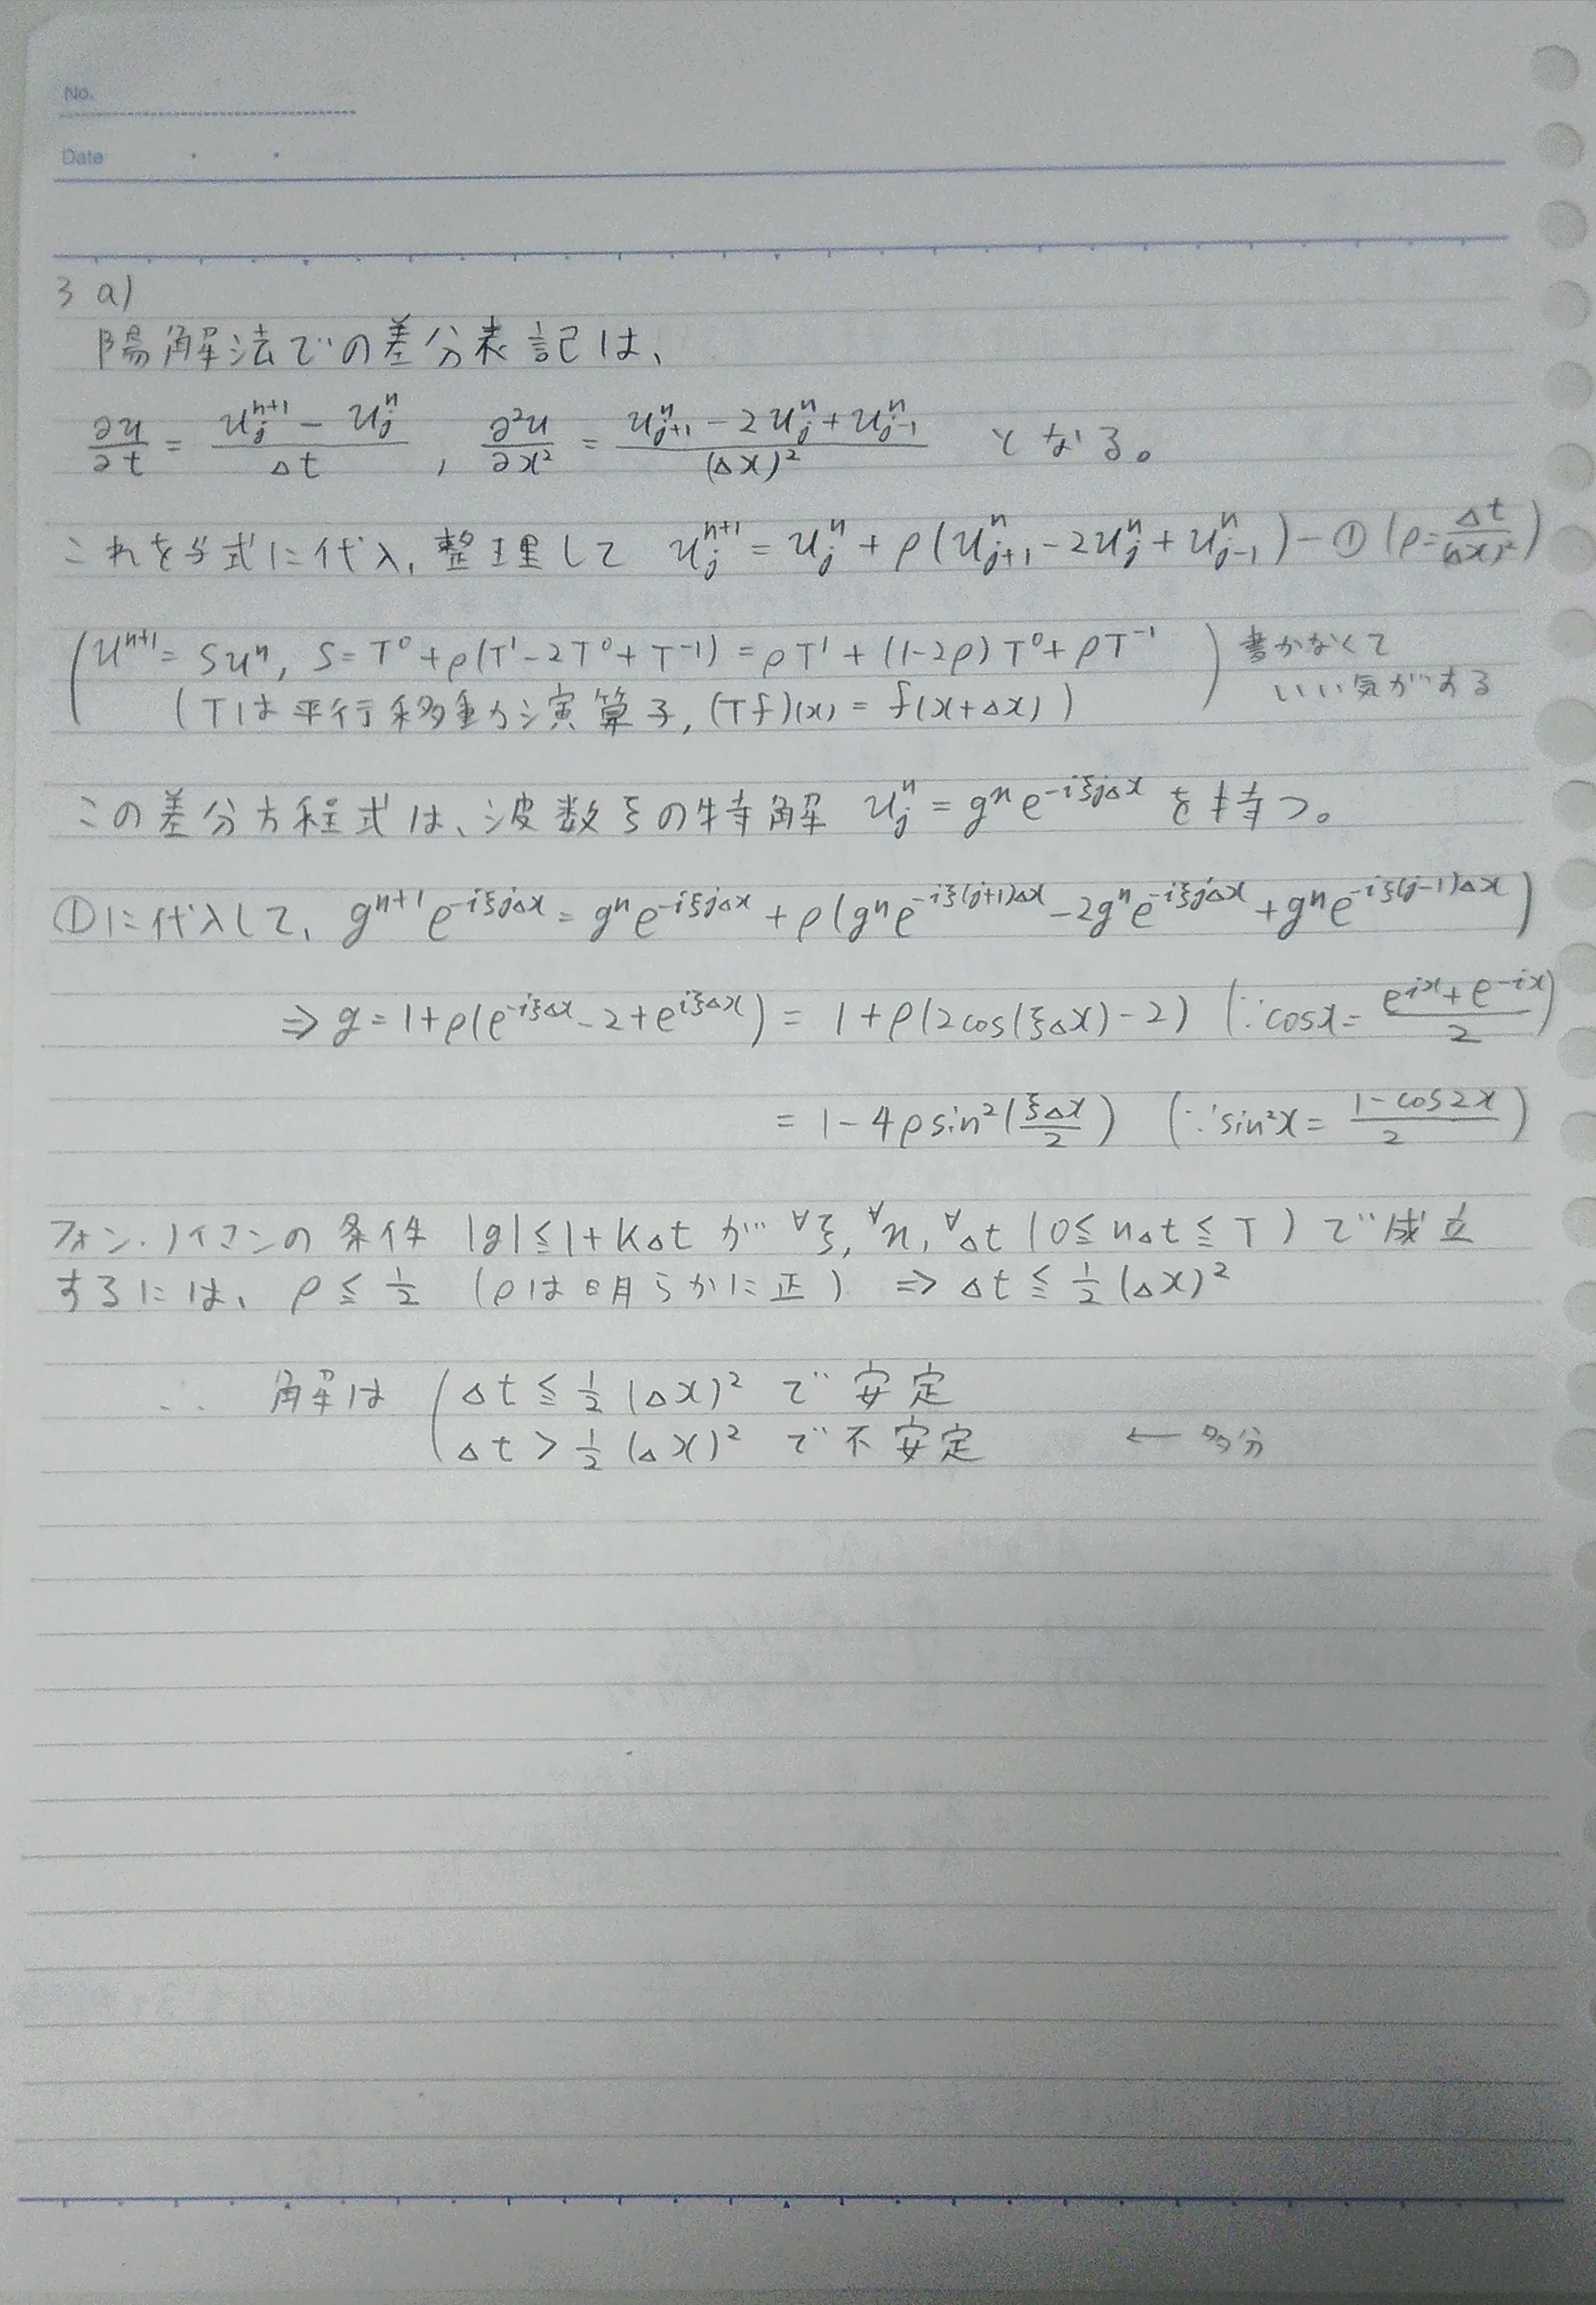 No.
Date
3 a)
陽解法での差分表記は、
∂u/∂t = (u_j^{n+1} - u_j^n)/Δt , ∂²u/∂x² = (u_{j+1}^n - 2u_j^n + u_{j-1}^n)/(Δx)² となる。
これを与式に代入, 整理して u_j^{n+1} = u_j^n + ρ(u_{j+1}^n - 2u_j^n + u_{j-1}^n) - ① (ρ = Δt/(Δx)²)
(u^{n+1} = Su^n, S = T^0 + ρ(T^1 - 2T^0 + T^{-1}) = ρT^1 + (1-2ρ)T^0 + ρT^{-1} 書かなくて
(Tは平行移動演算子, (Tf)(x) = f(x+Δx))) いい気がする
この差分方程式は、波数ξの特解 u_j^n = g^n e^{-iξjΔx} を持つ。
①に代入して、g^{n+1} e^{-iξjΔx} = g^n e^{-iξjΔx} + ρ(g^n e^{-iξ(j+1)Δx} - 2g^n e^{-iξjΔx} + g^n e^{-iξ(j-1)Δx})
⇒ g = 1+ρ(e^{-iξΔx} - 2 + e^{iξΔx}) = 1+ρ(2cos(ξΔx) - 2) (∵cosx = (e^{ix} + e^{-ix})/2)
= 1 - 4ρsin²(ξΔx/2) (∵sin²x = (1 - cos2x)/2)
フォン・ノイマンの条件 |g| ≦ 1+KΔt が ∀ξ, ∀n, ∀Δt (0≦nΔt≦T) で成立
するには、ρ ≦ 1/2 (ρは明らかに正) ⇒ Δt ≦ 1/2 (Δx)²
∴ 解は ( Δt ≦ 1/2 (Δx)² で安定
Δt > 1/2 (Δx)² で不安定 ← 多分